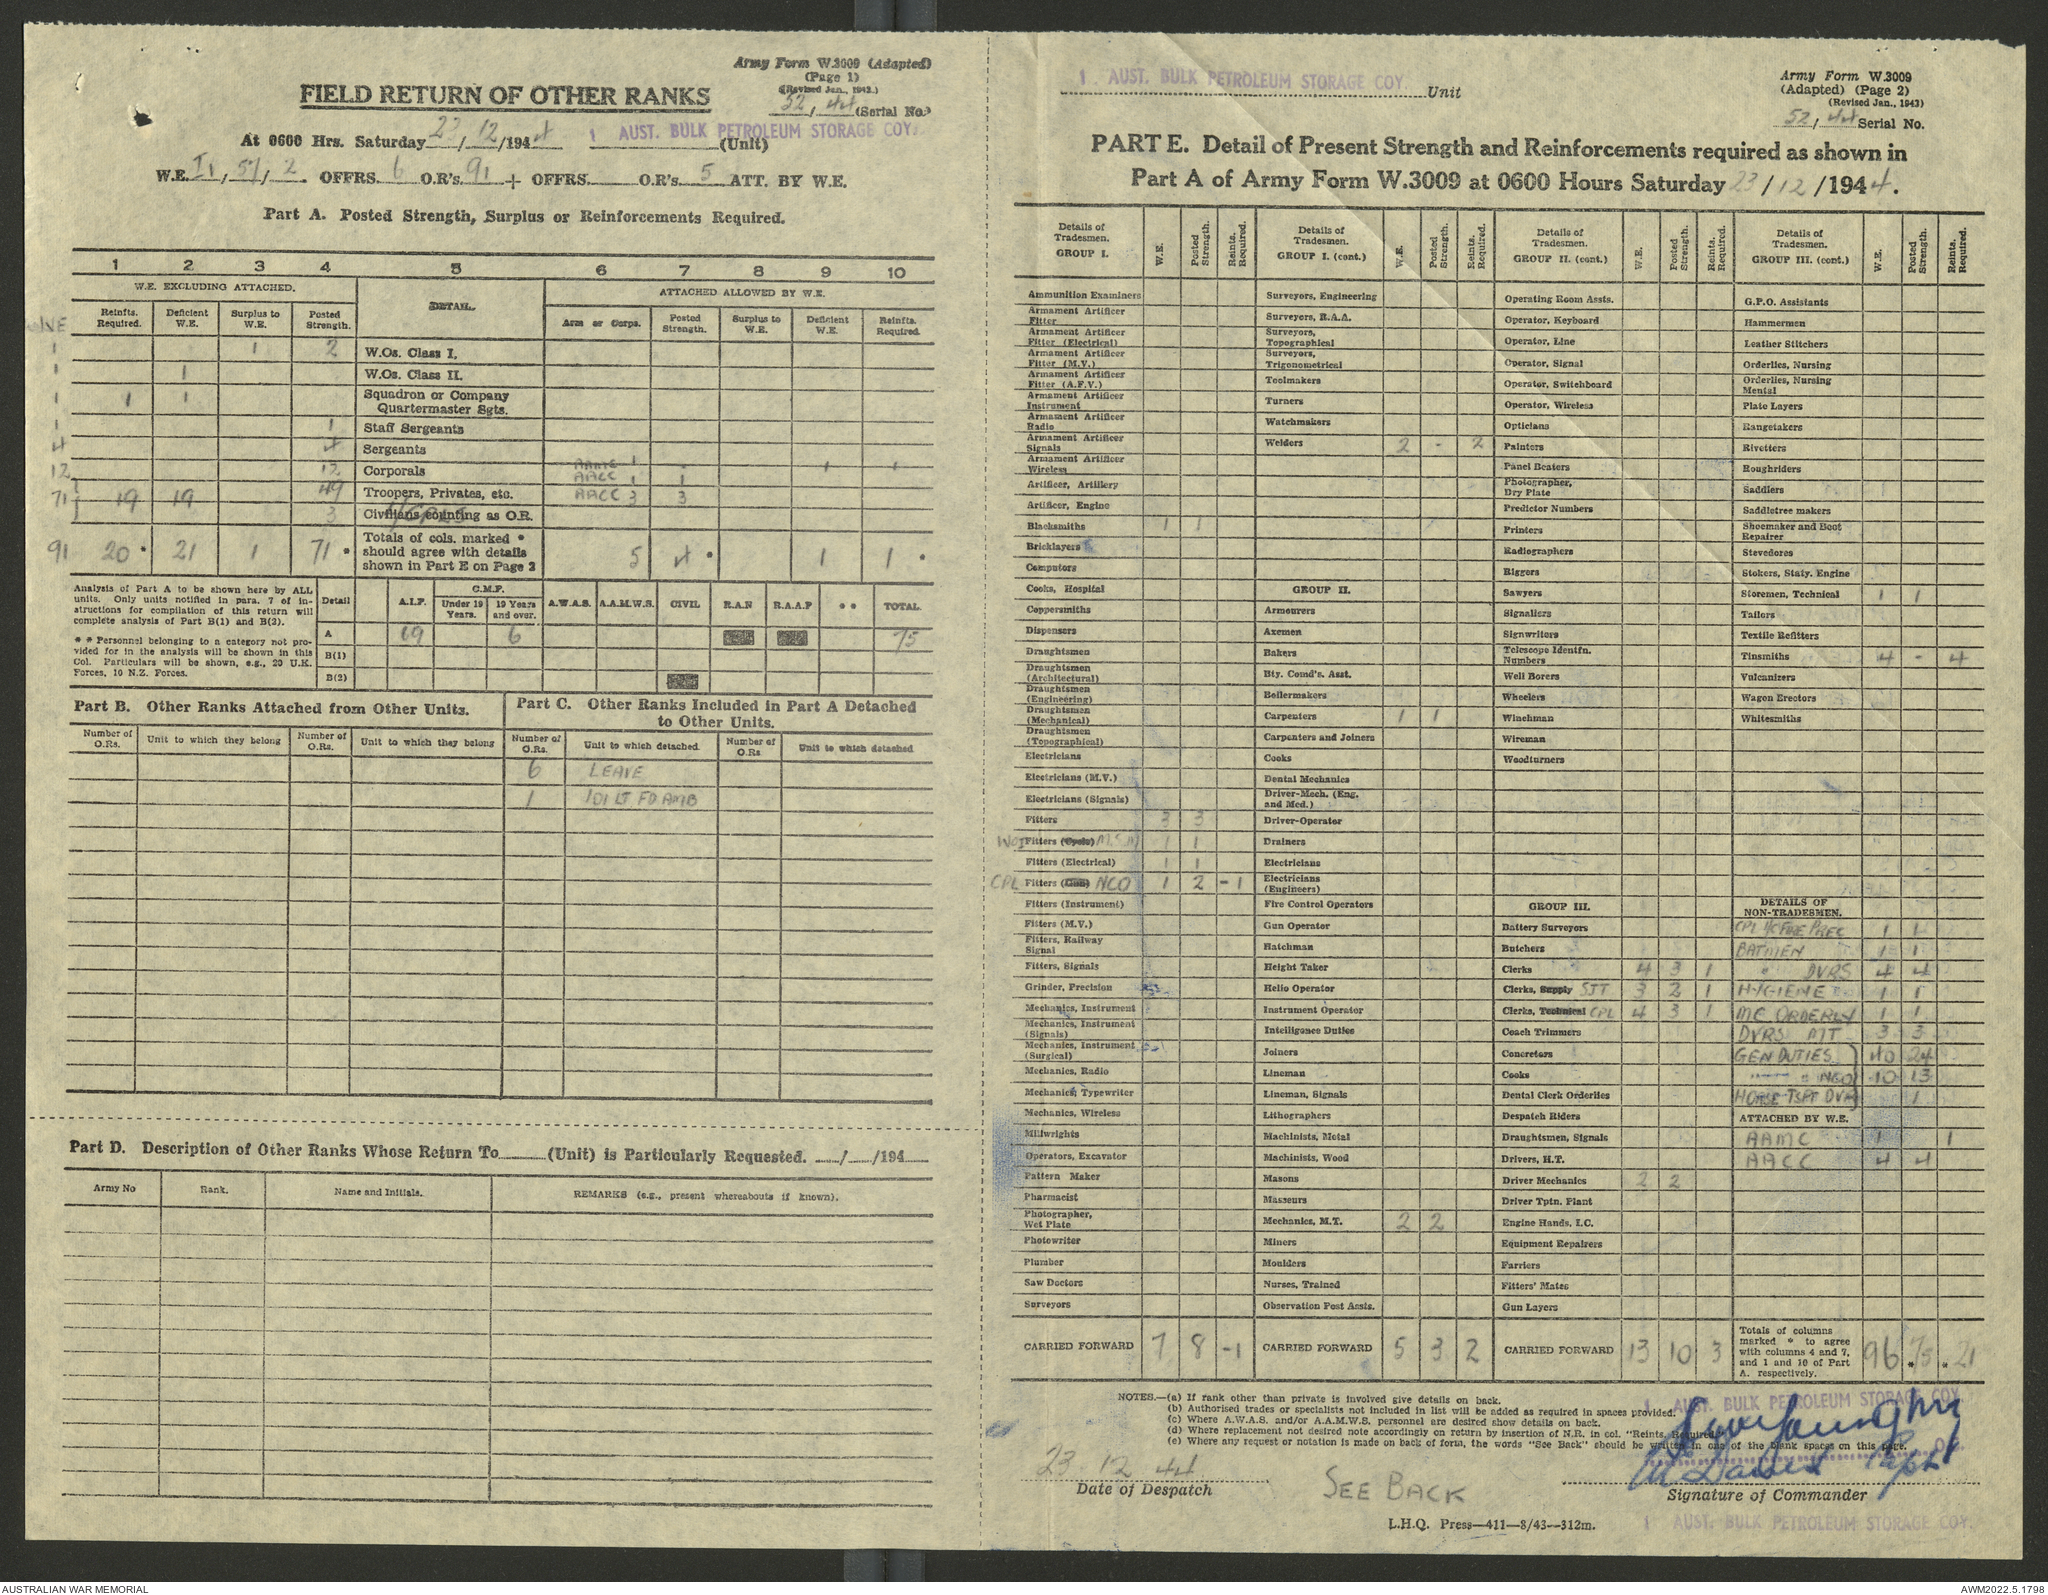 Army Form W.3009 (Adapted)
(Page 1)
(Revised Jan., 1943.)
FIELD RETURN OF OTHER RANKS
52, 44 (Serial No.)
At 0600 Hrs. Saturday 23/12/1944 1 AUST. BULK PETROLEUM STORAGE COY. (Unit)
W.E. II, 57, 2 OFFRS. 6 O.R's. 91 + OFFRS. O.R's. 5 ATT. BY W.E.
Part A. Posted Strength, Surplus or Reinforcements Required.
1 2 3 4 5 6 7 8 9 10
W.E. EXCLUDING ATTACHED. DETAIL. ATTACHED ALLOWED BY W.E.
Reinfts. Required. Deficient W.E. Surplus to W.E. Posted Strength. Arm or Corps. Posted Strength. Surplus to W.E. Deficient W.E. Reinfts. Required.
1 1 2 W.Os. Class I.
1 1 W.Os. Class II.
1 1 1 Squadron or Company Quartermaster Sgts.
1 1 Staff Sergeants
4 4 Sergeants
12 12 Corporals AAMC 1 - 1 1
AACC 1 1
71 19 19 49 Troopers, Privates, etc. AACC 3 3
3 Civilians counting as O.R.
91 20 * 21 1 71 * Totals of cols. marked * should agree with details shown in Part E on Page 2 5 4 * 1 1 *
Analysis of Part A to be shown here by ALL units. Only units notified in para. 7 of instructions for compilation of this return will complete analysis of Part B(1) and B(2).
* * Personnel belonging to a category not provided for in the analysis will be shown in this Col. Particulars will be shown, e.g., 20 U.K. Forces, 10 N.Z. Forces.
Detail A.I.F. C.M.F. Under 19 Years. 19 Years and over. A.W.A.S. A.A.M.W.S. CIVIL R.A.N R.A.A.F * * TOTAL.
A 69 6 75
B(1)
B(2)
Part B. Other Ranks Attached from Other Units.
Part C. Other Ranks Included in Part A Detached to Other Units.
Number of O.Rs. Unit to which they belong Number of O.Rs. Unit to which they belong Number of O.Rs. Unit to which detached. Number of O.Rs Unit to which detached
6 LEAVE
1 101 LT FD AMB
Part D. Description of Other Ranks Whose Return To (Unit) is Particularly Requested. / /194
Army No Rank. Name and Initials. REMARKS (e.g., present whereabouts if known).
1 AUST. BULK PETROLEUM STORAGE COY Unit
Army Form W.3009
(Adapted) (Page 2)
(Revised Jan., 1943)
52, 44 Serial No.
PART E. Detail of Present Strength and Reinforcements required as shown in
Part A of Army Form W.3009 at 0600 Hours Saturday 23/12/1944.
Details of Tradesmen. GROUP I. W.E. Posted Strength. Reints. Required.
Ammunition Examiners
Armament Artificer Fitter
Armament Artificer Fitter (Electrical)
Armament Artificer Fitter (M.V.)
Armament Artificer Fitter (A.F.V.)
Armament Artificer Instrument
Armament Artificer Radio
Armament Artificer Signals
Armament Artificer Wireless
Artificer, Artillery
Artificer, Engine
Blacksmiths 1 1
Bricklayers
Computors
Cooks, Hospital
Coppersmiths
Dispensers
Draughtsmen
Draughtsmen (Architectural)
Draughtsmen (Engineering)
Draughtsmen (Mechanical)
Draughtsmen (Topographical)
Electricians
Electricians (M.V.)
Electricians (Signals)
Fitters 3 3
WOI Fitters (Cycle) MSM 1 1
Fitters (Electrical) 1 1
CPL Fitters (Gun) NCO 1 2 -1
Fitters (Instrument)
Fitters (M.V.)
Fitters, Railway Signal
Fitters, Signals
Grinder, Precision
Mechanics, Instrument
Mechanics, Instrument (Signals)
Mechanics, Instrument (Surgical)
Mechanics, Radio
Mechanics, Typewriter
Mechanics, Wireless
Millwrights
Operators, Excavator
Pattern Maker
Pharmacist
Photographer, Wet Plate
Photowriter
Plumber
Saw Doctors
Surveyors
CARRIED FORWARD 7 8 -1
Details of Tradesmen. GROUP I. (cont.) W.E. Posted Strength. Reints. Required.
Surveyors, Engineering
Surveyors, R.A.A.
Surveyors, Topographical
Surveyors, Trigonometrical
Toolmakers
Turners
Watchmakers
Welders 2 - 2
GROUP II.
Armourers
Axemen
Bakers
Bty. Comd's. Asst.
Boilermakers
Carpenters 1 1
Carpenters and Joiners
Cooks
Dental Mechanics
Driver-Mech. (Eng. and Med.)
Driver-Operator
Drainers
Electricians
Electricians (Engineers)
Fire Control Operators
Gun Operator
Hatchman
Height Taker
Helio Operator
Instrument Operator
Intelligence Duties
Joiners
Lineman
Lineman, Signals
Lithographers
Machinists, Metal
Machinists, Wood
Masons
Masseurs
Mechanics, M.T. 2 2
Miners
Moulders
Nurses, Trained
Observation Post Assts.
CARRIED FORWARD 5 3 2
Details of Tradesmen. GROUP II. (cont.) W.E. Posted Strength. Reints. Required.
Operating Room Assts.
Operator, Keyboard
Operator, Line
Operator, Signal
Operator, Switchboard
Operator, Wireless
Opticians
Painters
Panel Beaters
Photographer, Dry Plate
Predictor Numbers
Printers
Radiographers
Riggers
Sawyers
Signallers
Signwriters
Telescope Identfn. Numbers
Well Borers
Wheelers
Winchman
Wireman
Woodturners
GROUP III.
Battery Surveyors
Butchers
Clerks 4 3 1
Clerks, Supply SJT 3 2 1
Clerks, Technical CPL 4 3 1
Coach Trimmers
Concretors
Cooks
Dental Clerk Orderlies
Despatch Riders
Draughtsmen, Signals
Drivers, H.T.
Driver Mechanics 2 2
Driver Tptn. Plant
Engine Hands, I.C.
Equipment Repairers
Farriers
Fitters' Mates
Gun Layers
CARRIED FORWARD 13 10 3
Details of Tradesmen. GROUP III. (cont.) W.E. Posted Strength. Reints Required.
G.P.O. Assistants
Hammermen
Leather Stitchers
Orderlies, Nursing
Orderlies, Nursing Mental
Plate Layers
Rangetakers
Rivetters
Roughriders
Saddlers
Saddletree makers
Shoemaker and Boot Repairer
Stevedores
Stokers, Staty. Engine
Storemen, Technical 1 1
Tailors
Textile Refitters
Tinsmiths 4 - 4
Vulcanizers
Wagon Erectors
Whitesmiths
DETAILS OF NON-TRADESMEN.
CPL I/C FIRE PREC 1 1
BATMEN 1 1
" DVRS 4 4
HYGIENE 1 1
MC ORDERLY 1 1
DVRS MT 3 3
GEN DUTIES 40 24
" " NCO 10 13
HORSE TSPT DVR 1
ATTACHED BY W.E.
AAMC 1 1
AACC 4 4
Totals of columns marked * to agree with columns 4 and 7, and 1 and 10 of Part A. respectively. 96 * 75 * 21
NOTES.—(a) If rank other than private is involved give details on back.
(b) Authorised trades or specialists not included in list will be added as required in spaces provided.
(c) Where A.W.A.S. and/or A.A.M.W.S. personnel are desired show details on back.
(d) Where replacement not desired note accordingly on return by insertion of N.R. in col. "Reints. Required."
(e) Where any request or notation is made on back of form, the words "See Back" should be written in one of the blank spaces on this page.
1 AUST. BULK PETROLEUM STORAGE COY.
23 12 44
Date of Despatch
SEE BACK
Capt
Signature of Commander
L.H.Q. Press—411—8/43—312m.
1 AUST. BULK PETROLEUM STORAGE COY.
AUSTRALIAN WAR MEMORIAL
AWM2022.5.1798